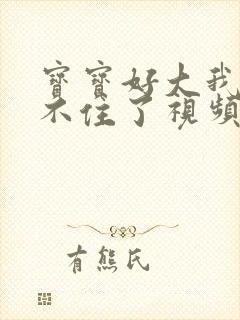 寳寳好大我
不住了視頻
有熊氏